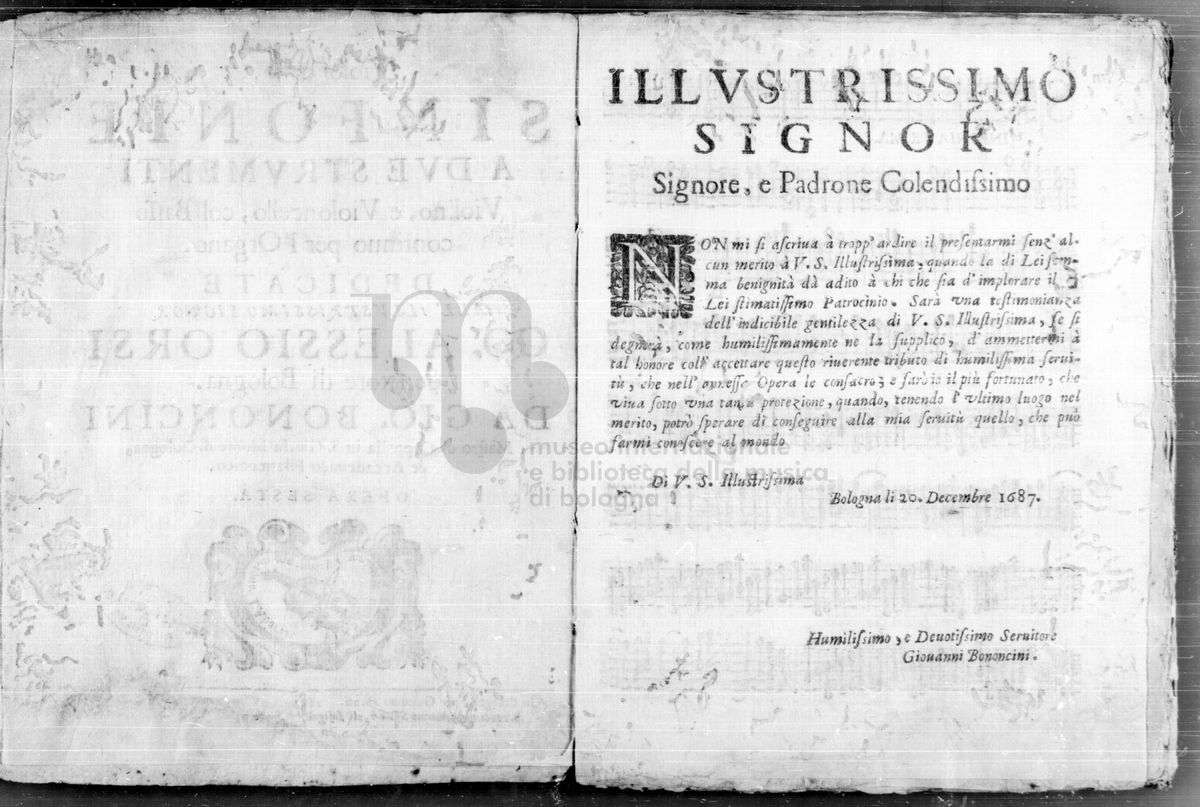 ILLVSTRISSIMO
SIGNOR
Signore, e Padrone Colendiſsimo
NON mi ſi aſcriua à tropp' ardire il preſentarmi ſenz' al-
cun merito à V. S. Illuſtriſsima, quando la di Lei ſom-
ma benignità dà adito à chi che ſia d'implorare il
Lei ſtimatiſſimo Patrocinio. Sarà vna teſtimonianza
dell'indicibile gentilezza di V. S. Illuſtriſsima, ſe ſi
degnerà, come humiliſſimamente ne la ſupplico, d'ammettermi à
tal honore coll' accettare queſto riuerente tributo di humiliſsima ſerui-
tù, che nell' anneſſe Opera le conſacro; e ſarò io il più fortunato, che
viua ſotto vna tanta protezione, quando, tenendo l'vltimo luogo nel
merito, potrò ſperare di conſeguire alla mia ſeruitù quello, che può
farmi conoſcere al mondo
Di V. S. Illuſtriſsima
Bologna li 20. Decembre 1687.
Humiliſsimo, e Deuotiſsimo Seruitore
Giouanni Bononcini.
SINFONIE
A DVE STRVMENTI
Violino, e Violoncello, col Baſſo
continuo per l'Organo.
DEDICATE
ALL' ILLVSTRISSIMO SIGNOR
CO: ALESSIO ORSI
di Bologna.
DA GIO. BONONCINI
OPERA SESTA.
m
museo internazionale
e biblioteca della musica
di bologna